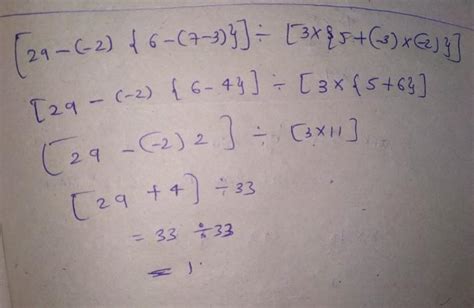 [29-(-2) {6-(7-3)}] ÷ [3×{5+(-3)×(-2)}]
[29 - (-2) {6-4}] ÷ [3×{5+6}]
[29 -(-2) 2] ÷ [3×11]
[29 +4] ÷33
= 33 ÷33
= 1.